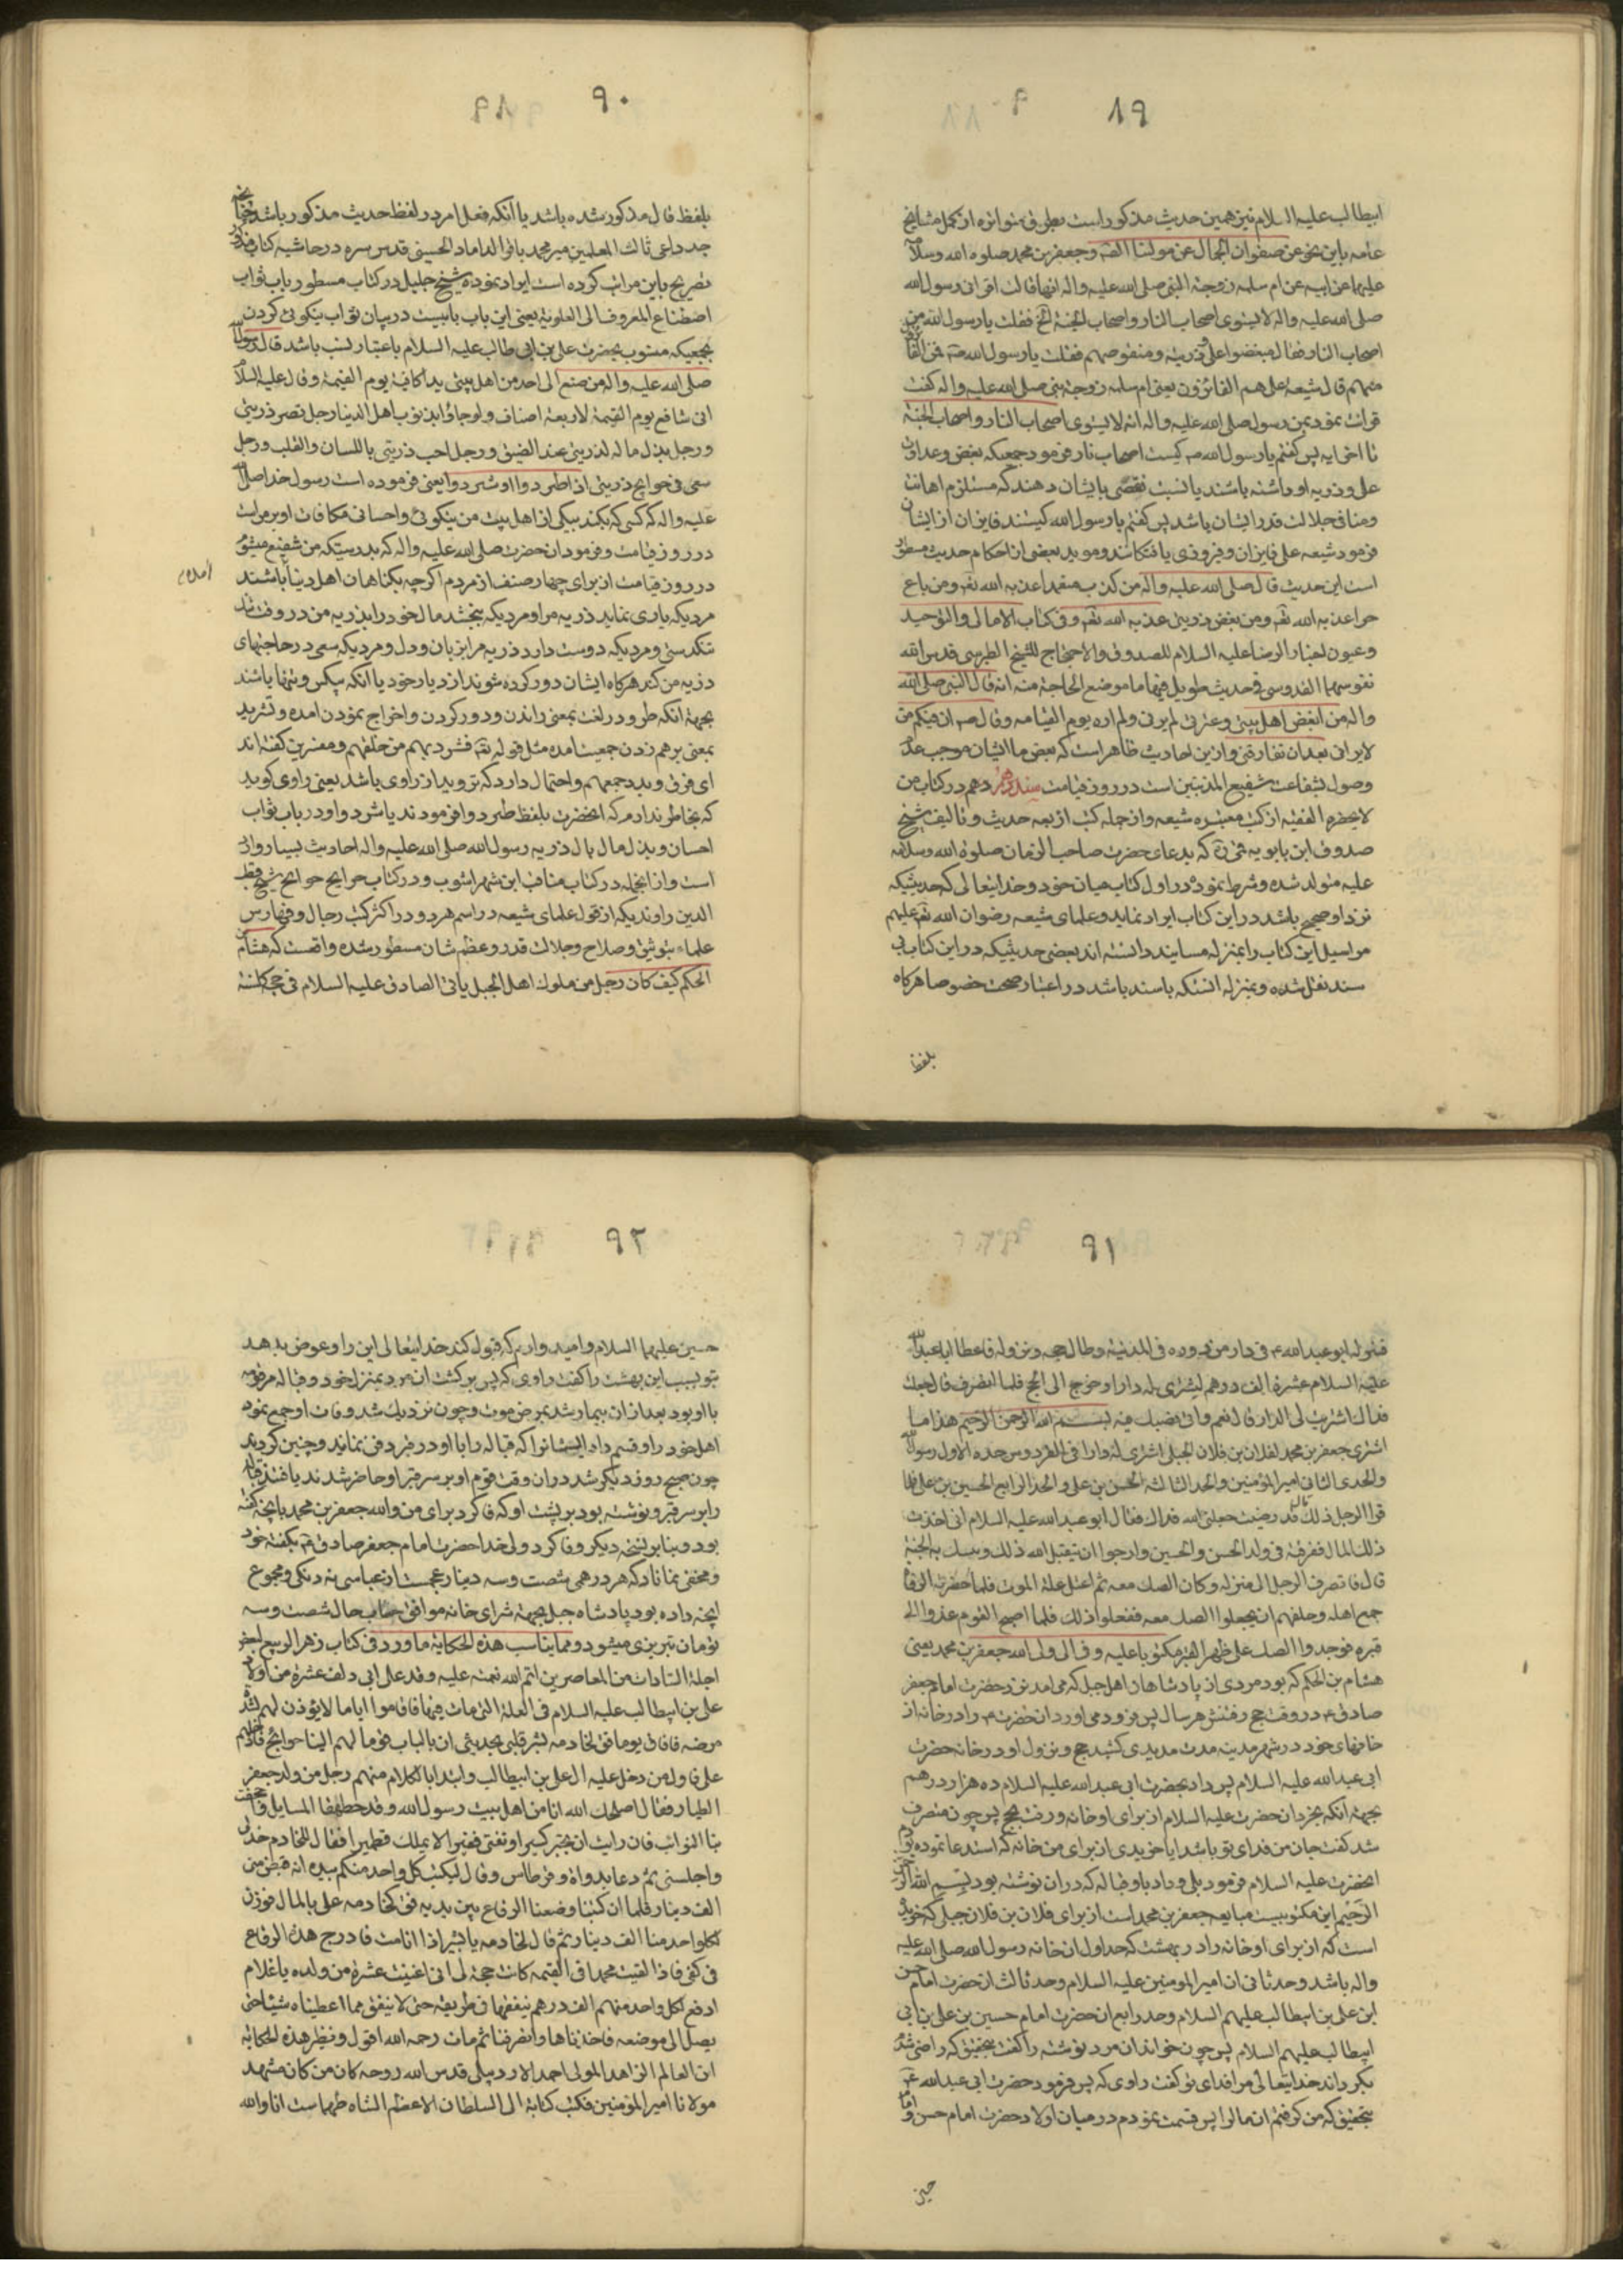 ۸۹
ابیطالب علیه السلام نیز همین حدیث مذکور است بطرق متواتره از کمل مشایخ
عامه باین نحو عن صفوان الجمال عن مولینا الثقه وجعفر بن محمد صلوة الله وسلا
علیهما عن ابیه عن ام سلمه زوجة النبی صلی الله علیه واله انها قالت اقرانی رسول الله
صلی الله علیه واله لا یستوی اصحاب النار واصحاب الجنة الخ فقلت یا رسول الله من
اصحاب النار فقال مبغضوا علی وذریته ومنقوصهم فقلت یا رسول الله فمن الفا
منهم قال شیعة علی هم الفائزون یعنی ام سلمه زوجهٔ نبی صلی الله علیه واله کفت
قرائت نمودم من رسول صلی الله علیه واله انه لا یستوی اصحاب النار واصحاب الجنة
تا اخر ایه پس کفتم یا رسول الله کیست اصحاب نار فرمود جمعیکه بغض وعداوت
علی وذریه او داشته باشند یا نسبت نقصی بایشان دهند که مستلزم اهانت
ومنافی جلالت قدر ایشان باشد پس کفتم یا رسول الله کیستند فایزان از ایشان
فرمود شیعه علی فایزان وفیروزی یافتکانند وموید بعضی از احکام حدیث مسطور
است این حدیث قال صلی الله علیه واله من کذب متعمدا عذبه الله تعه ومن باع
حرا عذبه الله تعه ومن بغض ذریتی عذبه الله تعه وفی کتاب الامالی والتوحید
وعیون اخبار الرضا علیه السلام للصدوق والاحتجاج للشیخ الطبرسی قدس الله
نفوسهما القدوسی فی حدیث طویل فیها ما موضع الحاجة منه انه قال النبی صلی الله
واله من ابغض اهل بیتی وعترتی لم یرنی ولم اره یوم القیامه وقال ص ان منکم من
لا یرانی بعد ان تفارقنی وازین احادیث ظاهر است که بعض ما ایشان موجب عدم
وصول شفاعت شفیع المذنبین است در روز قیامت سند دهم در کتاب من
لا یحضره الفقیه از کتب معتبره شیعه واز جمله کتب اربعه حدیث وتالیف شیخ
صدوق ابن بابویه قمی که بدعای حضرت صاحب الزمان صلوة الله وسلامه
علیه متولد شده وشرط نموده در اول کتاب میان خود وخدایتعالی که حدیثیکه
نزد او صحیح باشد در این کتاب ایراد نماید وعلمای شیعه رضوان الله تعه علیهم
مراسیل این کتاب را بمنزله مسانید دانسته اند بعضی حدیثیکه در این کتاب بی
سند نقل شده وبمنزله انستکه باسند باشد در اعتبار صحت خصوصا هرکاه
بلفظ
۹۰
بلفظ قال مذکور شده باشد یا آنکه فعل امر در لفظ حدیث مذکور باشد چنانچه
جد داعی ثالث المعلمین میر محمد باقر الداماد الحسینی قدس سره در حاشیه کتاب
تصریح باین مراتب کرده است ایراد نموده شیخ جلیل در کتاب مسطور باب ثواب
اصطناع المعروف الی العلویة یعنی این باب بابیست در بیان ثواب نیکوئی کردن
بجمعیکه منسوب بحضرت علی بن ابی طالب علیه السلام باعتبار نسب باشد قال رسول
صلی الله علیه واله من صنع الی احد من اهل بیتی یدا کافیته یوم القیمة وقال علیه السلا
انی شافع یوم القیمة لاربعة اصناف ولو جاؤا بذنوب اهل الدنیا رجل نصر ذریتی
ورجل بذل ماله لذریتی عند الضیق ورجل احب ذریتی باللسان والقلب ورجل
سعی فی حوایج ذریتی اذا طردوا او شردوا یعنی فرموده است رسول خدا صلی
علیه واله که کسی که بکند بیکی از اهل بیت من نیکوئی واحسانی مکافات او بر من است
در روز قیامت وفرمود ان حضرت صلی الله علیه واله که بدرستیکه من شفیع میشوم
در روز قیامت از برای چهار صنف از مردم اکرچه بکناهان اهل دنیا باشند
مردیکه یاری نماید ذریه مرا ومردیکه ببخشد مال خود را بذریه من در وقت
تنکدستی ومردیکه دوست دارد ذریه مرا بزبان ودل ومردیکه سعی در حاجتهای
ذریه من کند هرکاه ایشان دور کرده شوند از دیار خود یا انکه بیکس وتنها باشند
بجهة انکه طرد در لغت بمعنی راندن ودور کردن واخراج نمودن امده وتشرید
بمعنی برهم زدن جمعیت امده مثل قوله تعه فشرد بهم من خلفهم ومفسرین کفته اند
ای فرق وبدد جمعهم واحتمال دارد که تردید از راوی باشد یعنی راوی کوید
که بخاطر ندارم که انحضرت بلفظ طردوا فرمودند یا شردوا ودر باب ثواب
احسان وبذل مال بال ذریه رسول الله صلی الله علیه واله احادیث بسیار وارد
است وازانجمله در کتاب مناقب ابن شهر اشوب ودر کتاب خرایج جرایح شیخ قطب
الدین راوندیکه از فحول علمای شیعه در اسم هر دو در اکثر کتب رجال وفهارس
علماء بتوثیق وصلاح وجلالت قدر وعظم شان مسطور شده واقعست که هشام بن
الحکم کیف کان رجل من ملوک اهل الجبل یاتی الصادق علیه السلام فی حجة کل سنة
۹۱
فینزله ابو عبد الله ع فی دار من دوره فی المدینة وطال حجه ونزوله فاعطا ابا عبد الله
علیه السلام عشرة الف درهم لیشتری له دارا وخرج الی الحج فلما انصرف قال جعلت
فداک اشتریت لی الدار قال نعم واتی بصک فیه بسم الله الرحمن الرحیم هذا ما
اشتری جعفر بن محمد لفلان بن فلان الجبلی اشتری له دارا فی الفردوس حده الاول رسول الله
والحدی الثانی امیر المؤمنین والحد الثالث الحسن بن علی والحد الرابع الحسین بن علی فلما
قرا الرجل ذلک قال قد رضیت جعلنی الله فداک فقال ابو عبد الله علیه السلام انی اخذت
ذلک المال ففرقته فی ولد الحسن والحسین وارجوا ان یتقبل الله ذلک ویثیبک به الجنة
قال فانصرف الرجل الی منزله وکان الصک معه ثم اعتل علة الموت فلما حضرته الوفاة
جمع اهله وحلفهم ان یجعلوا الصک معه ففعلوا ذلک فلما اصبح القوم غدوا الی
قبره فوجدوا الصک علی ظهر القبر مکتوبا علیه وفی لی ولی الله جعفر بن محمد یعنی
هشام بن الحکم که بود مردی از پادشاهان اهل جبل که می امد نزد حضرت امام جعفر
صادق ع در وقت حج رفتنش هر سال پس فرود می اورد ان حضرت او را در خانه از
خانهای خود در شهر مدینه مدت مدیدی کشید حج ونزول او در خانه حضرت
ابی عبد الله علیه السلام پس داد بحضرت ابی عبد الله علیه السلام ده هزار درهم
بجهة انکه بخرد ان حضرت علیه السلام از برای او خانه ورفت بحج پس چون منصرف
شد کفت جان من فدای تو باشد ایا خریدی از برای من خانه که استدعا نموده بودم
انحضرت علیه السلام فرمود بلی وداد باو قباله که در ان نوشته بود بسم الله الرحمن
الرحیم این مکتوبیست مبایعه جعفر بن محمد است از برای فلان بن فلان جبلی که خریده
است که از برای او خانه را در بهشت که حد اول ان خانه رسول الله صلی الله علیه
واله باشد وحد ثانی ان امیر المومنین علیه السلام وحد ثالث ان حضرت امام حسن
ابن علی بن ابیطالب علیهم السلام وحد رابع ان حضرت امام حسین بن علی بن ابی
ابیطالب علیهم السلام پس چون خواند ان مرد نوشته را کفت بتحقیق که راضی شدم
بکرداند خدایتعالی مرا فدای تو کفت راوی که پس فرمود حضرت ابی عبد الله ع
بتحقیق که من کرفتم ان مال را پس قسمت نمودم در میان اولاد حضرت امام حسن وامام
حسین
۹۲
حسین علیهما السلام وامیدوارم که قبول کند خدایتعالی این را وعوض بدهد
بتو بسبب این بهشت را کفت راوی که پس برکشت ان مرد بمنزل خود وقباله مرقومه
با او بود بعد از ان بیمار شد بمرض موت وچون نزدیک شد وفات او جمع نمود
اهل خود را وقسم داد ایشانرا که قباله را با او در قبر دفن نمایند وچنین کردند
چون صبح روز دیکر شد در ان وقت قوم او بر سر قبر او حاضر شدند یافتند قباله
را بر سر قبر ونوشته بود بر پشت او که وفا کرد برای من والله جعفر بن محمد بانچه کفته
بود وبنابر نسخه دیکر وفا کرد ولی خدا حضرت امام جعفر صادق ع بکفته خود
ومخفی نماناد که هر درهمی شصت وسه دینار عجمست از عباسی نه دنکی ومجموع
انچه داده بود پادشاه جبل بجهة شرای خانه موافق حساب حال شصت وسه
تومان تبریزی میشود ومما یناسب هذه الحکایة ما ورد فی کتاب زهر الربیع لبعض
اجلة السادات من المعاصرین اتم الله نعمته علیه وفد علی ابی دلف عشرة من اولاد
علی بن ابیطالب علیه السلام فی العلة التی مات فیها فاقاموا ایاما لا یؤذن لهم لشدة
مرضه فافاق یوما فقال لخادمه بشر قلبی یحدثنی ان بالباب قوما لهم الینا حوائج فادخلهم
علی فاول من دخل علیه ال علی بن ابیطالب وابتدا بالکلام منهم رجل من ولد جعفر
الطیار فقال اصلحک الله انا من اهل بیت رسول الله وقد حطمتنا المسایل واجحفت
بنا النوائب فان رایت ان تجبر کسیرا وتغنی فقیرا لا یملک قطمیرا فقال للخادم خذ بی
واجلسنی ثم دعا بدواة وقرطاس وقال لیکتب کل واحد منکم بیده انه قبض منی
الف دینار فلما ان کتبنا وضعنا الرقاع بین یدیه فقال لخادمه علی بالمال فوزن
لکل واحد منا الف دینار ثم قال لخادمه یا بشر اذا انا مت فادرج هذه الرقاع
فی کفنی فاذا لقیت محمدا فی القیمه کانت حجة لی انی اغنیت عشرة من ولده یا غلام
ادفع لکل واحد منهم الف درهم ینفقها فی طریقه حتی لا ینفق مما اعطیناه شیئا حتی
یصل الی موضعه فاخذناها وانصرفنا ثم مات رحمه الله اقول ونظیر هذه الحکایة
ان العالم الزاهد المولی احمد الاردبیلی قدس الله روحه کان من کان مشهد
مولانا امیر المؤمنین فکتب کتابة الی السلطان الاعظم الشاه طهماست انار الله